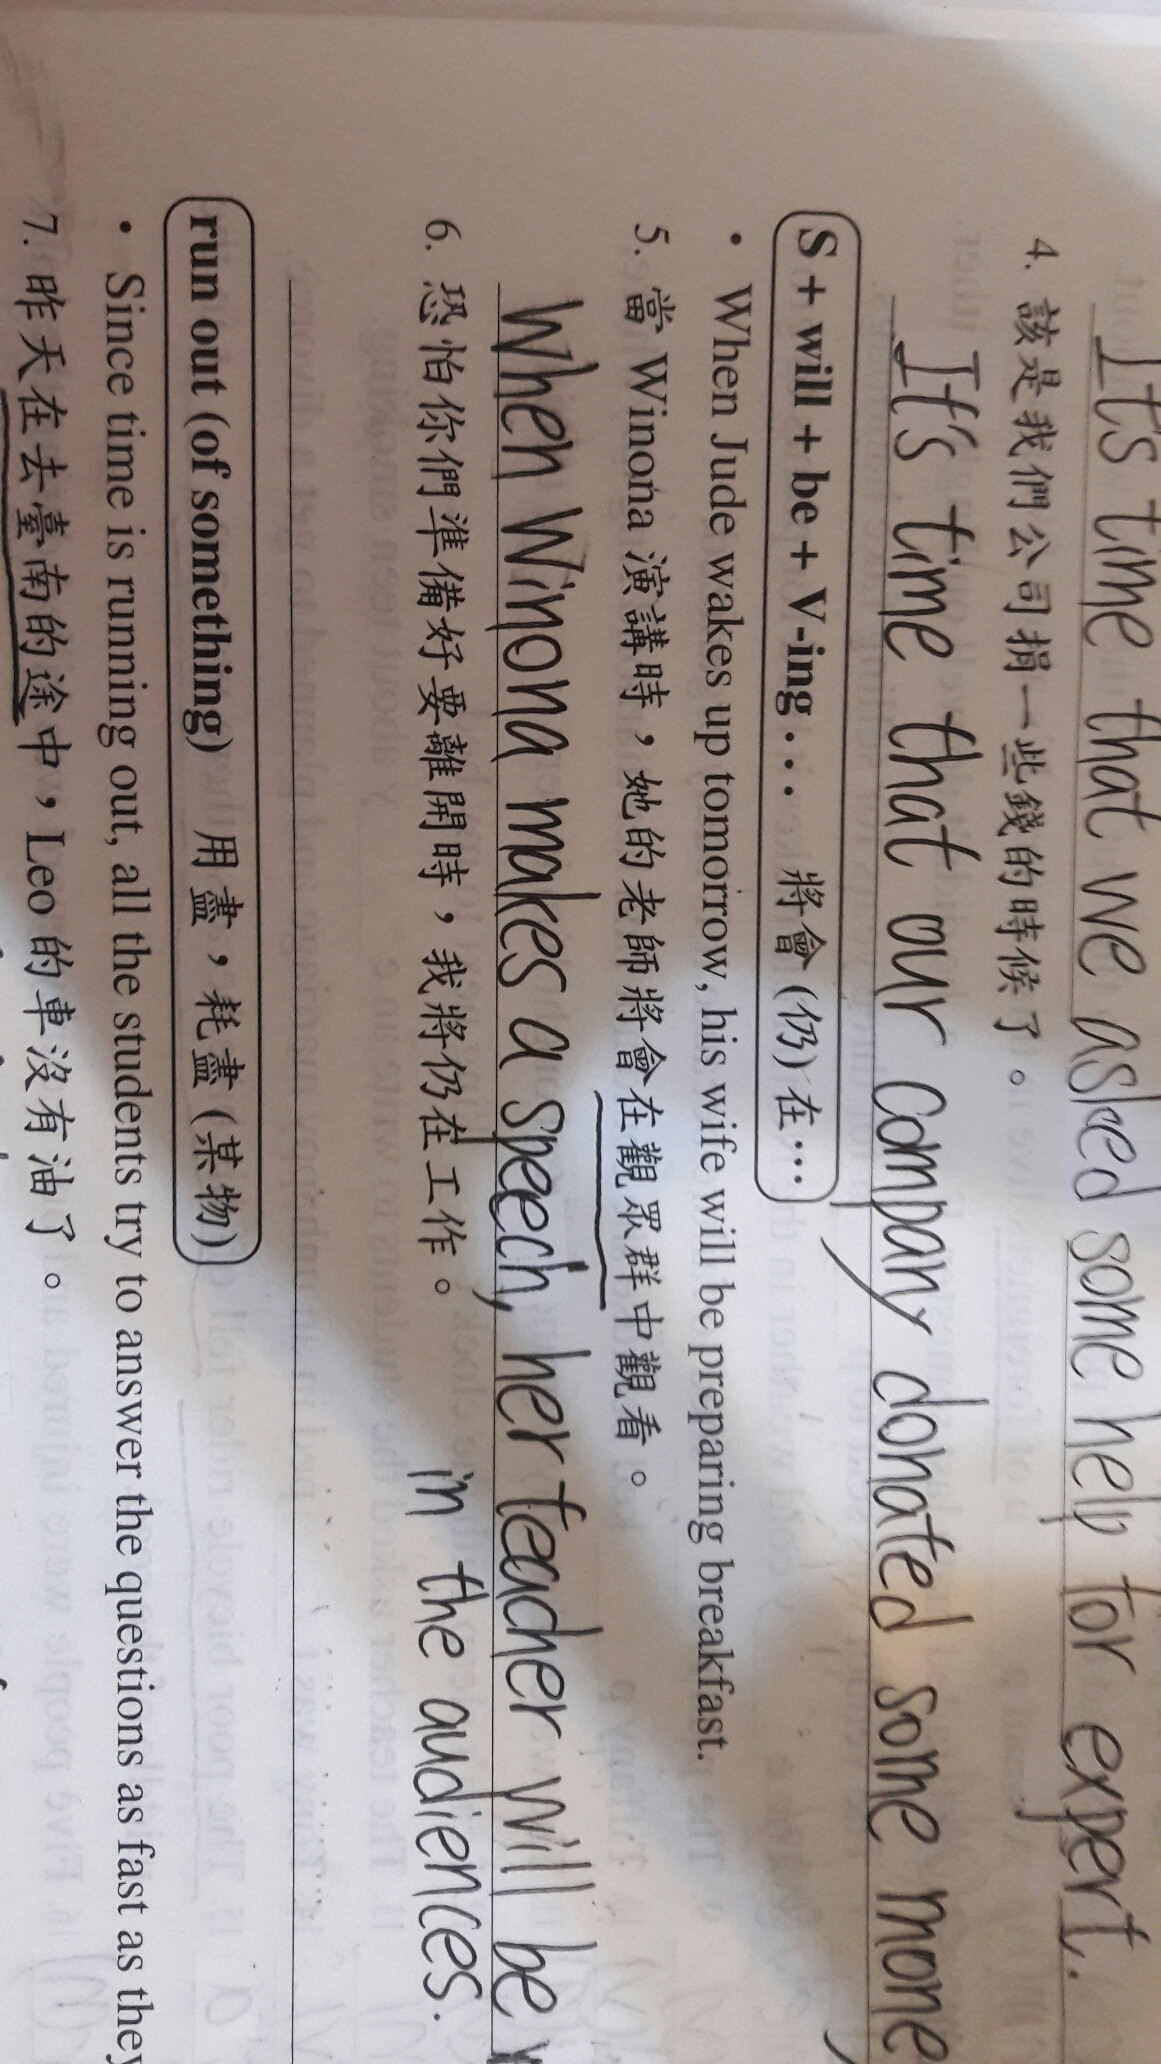 It's time that we asked some help for expert.
4. 該是我們公司捐一些錢的時候了。
It's time that our company donated some mone
S + will + be + V-ing… 將會 (仍) 在…
• When Jude wakes up tomorrow, his wife will be preparing breakfast.
5. 當 Winona 演講時，她的老師將會在觀眾群中觀看。
When Winona makes a speech, her teacher will be
in the audiences.
6. 恐怕你們準備好要離開時，我將仍在工作。
run out (of something) 用盡，耗盡 (某物)
• Since time is running out, all the students try to answer the questions as fast as they
7. 昨天在去臺南的途中，Leo 的車沒有油了。